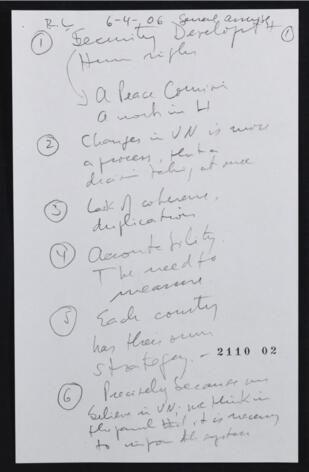 R.L 6-4-06
① Security Development ①
Human rights
A Peace
② Changes in UN is more
a process, than a
decision taken, at once
③ Lack of coherence,
duplications
④ Accountability.
The need to
measure
⑤ Each country
has their own
strategy. - 2110 02
⑥ Precisely because we
believe in UN, we think in
the panel, it is necessary
to the system